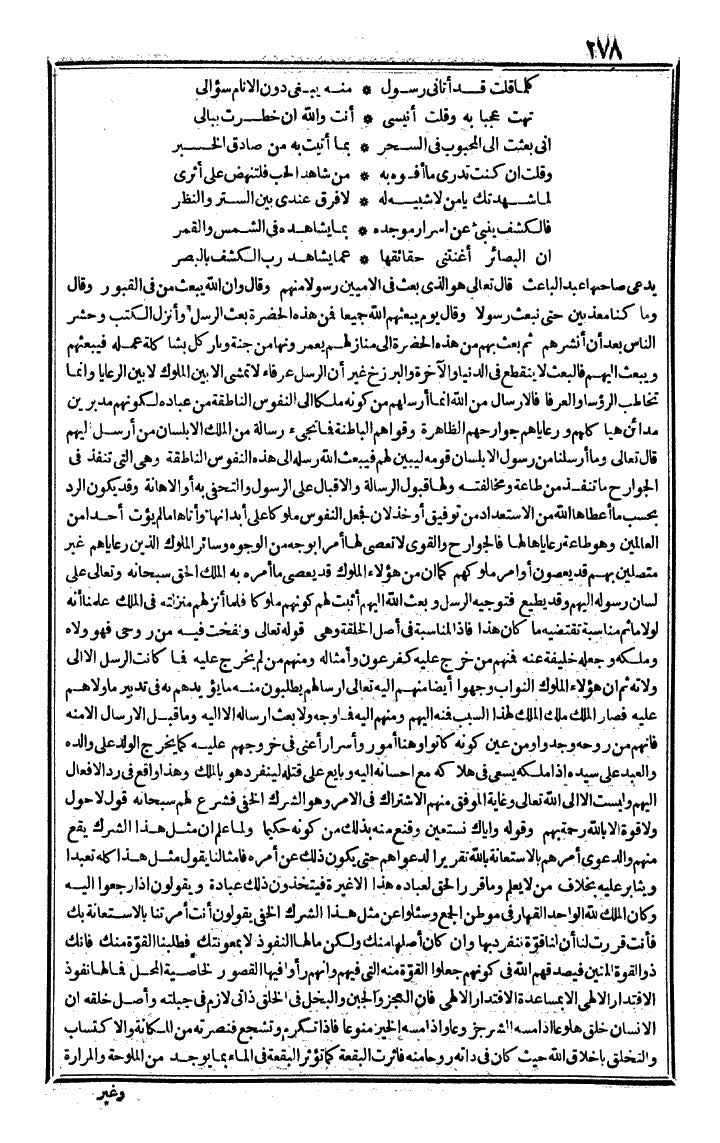 ٢٧٨
كلما قلت قد أتانى رسول * منه يبغى دون الانام سؤالى
تهت عجبا به وقلت أنيسى * أنت والله ان خطرت ببالى
انى بعثت الى المحبوب فى السحر * بما أتيت به من صادق الخبر
وقلت ان كنت تدرى ما أفوه به * من شاهد الحب فلتنهض على أثرى
لما شهدتك يا من لا شبيه له * لا فرق عندى بين الستر والنظر
فالكشف ينبئ عن اسرار موجده * بما يشاهده فى الشمس والقمر
ان البصائر أغنتنى حقائقها * عما يشاهد رب الكشف بالبصر
يدعى صاحبها عبد الباعث قال تعالى هو الذى بعث فى الاميين رسولا منهم وقال وان الله يبعث من فى القبور وقال
وما كنا معذبين حتى نبعث رسولا وقال يوم يبعثهم الله جميعا فمن هذه الحضرة بعث الرسل وأنزل الكتب وحشر
الناس بعد أن أنشرهم ثم بعث بهم من هذه الحضرة الى منازلهم يعمرونها من جنة ونار كل بشاكلة عمله فيبعثهم
ويبعث اليهم فالبعث لا ينقطع فى الدنيا والآخرة والبرزخ غير أن الرسل عرفاء لا تمشى الا بين الملوك لا بين الرعايا وانما
تخاطب الرؤسا والعرفا فالارسال من الله انما أرسلهم من كونه ملكا الى النفوس الناطقة من عباده لكونهم مدبرين
مدائن هياكلهم ورعاياهم جوارحهم الظاهرة وقواهم الباطنة فما تجىء رسالة من الملك الا بلسان من أرسل اليهم
قال تعالى وما أرسلنا من رسول الا بلسان قومه ليبين لهم فيبعث الله رسله الى هذه النفوس الناطقة وهى التى تنفذ فى
الجوارح ما تنفذ من طاعة ومخالفته ولها قبول الرسالة والاقبال على الرسول والتحفى به أو الاهانة وقد يكون الرد
بحسب ما أعطاها الله من الاستعداد من توفيق أو خذلان فجعل النفوس ملوكا على أبدانها وأتاها ما لم يؤت أحدا من
العالمين وهو طاعة رعاياها لها فالجوارح والقوى لا تعصى لها أمرا بوجه من الوجوه وسائر الملوك الذين رعاياهم غير
متصلين بهم قد يعصون أوامر ملوكهم كما ان من هؤلاء الملوك قد يعصى ما أمره به الملك الحق سبحانه وتعالى على
لسان رسوله اليهم وقد يطيع فتوجيه الرسل وبعث الله اليهم أثبت لهم كونهم ملوكا فلما أنزلهم منزلته فى الملك علمنا أنه
لولا ما ثم مناسبة تقتضيه ما كان هذا فاذا المناسبة فى أصل الخلقة وهى قوله تعالى ونفخت فيه من روحى فهو ولاه
وملكه وجعله خليفة عنه فمنهم من خرج عليه كفرعون وأمثاله ومنهم من لم يخرج عليه فما كانت الرسل الا الى
ولاته ثم ان هؤلاء الملوك النواب وجهوا أيضا منهم اليه تعالى ارسالهم يطلبون منه ما يؤيدهم به فى تدبير ما ولاهم
عليه فصار الملك ملك الملك لهذا السبب فمنه اليهم ومنهم اليه فما وجه ولا بعث ارساله الا اليه وما قبل الارسال الا منه
فانهم من روحه وجدوا ومن عين كونه كانوا وهنا أمور وأسرار أعنى فى خروجهم عليه كما يخرج الولد على والده
والعبد على سيده اذا ملكه يسعى فى هلاكه مع احسانه اليه ويبايع على قتله لينفرد هو بالملك وهذا واقع فى رد الافعال
اليهم وليست الا الى الله تعالى وغاية الموفق منهم الاشتراك فى الامر وهو الشرك الخفى فشرع لهم سبحانه قول لا حول
ولا قوة الا بالله رحمة بهم وقوله واياك نستعين وقنع منه بذلك من كونه حكيما ولما علم ان مثل هذا الشرك يقع
منهم والدعوى أمرهم بالاستعانة بالله تقريرا لدعواهم حتى يكون ذلك عن أمره فامثالنا يقول مثل هذا كله تعبدا
ويثابر عليه بخلاف من لا يعلم وما قررا لحق لعباده هذا الا غيرة فيتخذون ذلك عبادة ويقولون اذا رجعوا اليه
وكان الملك لله الواحد القهار فى موطن الجمع وسئلوا عن مثل هذا الشرك الخفى يقولون أنت أمرتنا بالاستعانة بك
فأنت قررت لنا أن لنا قوة ننفرد بها وان كان أصلها منك ولكن مالها النفوذ لا بمعونتك فطلبنا القوة منك فانك
ذو القوة المتين فيصدقهم الله فى كونهم جعلوا القوة منه التى فيهم وانهم رأوا فيها القصور لخاصية المحل فما لها نفوذ
الاقتدار الالهى الا بمساعدة الاقتدار الالهى فان العجز والجبن والبخل فى الخلق ذاتى لازم فى جبلته وأصل خلقه ان
الانسان خلق هلوعا اذا مسه الشر جزوعا واذا مسه الخير منوعا فاذا تكرم وتشجع فنصرته من المكانة والاكتساب
والتخلق باخلاق الله حيث كان فى ذاته روحا منه فاثرت البقعة كما تؤثر البقعة فى الماء بما يوجد من الملوحة والمرارة
وغير